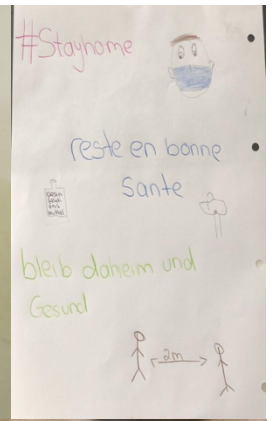 #Stayhome
reste en bonne
sante
bleib daheim und
Gesund
2m